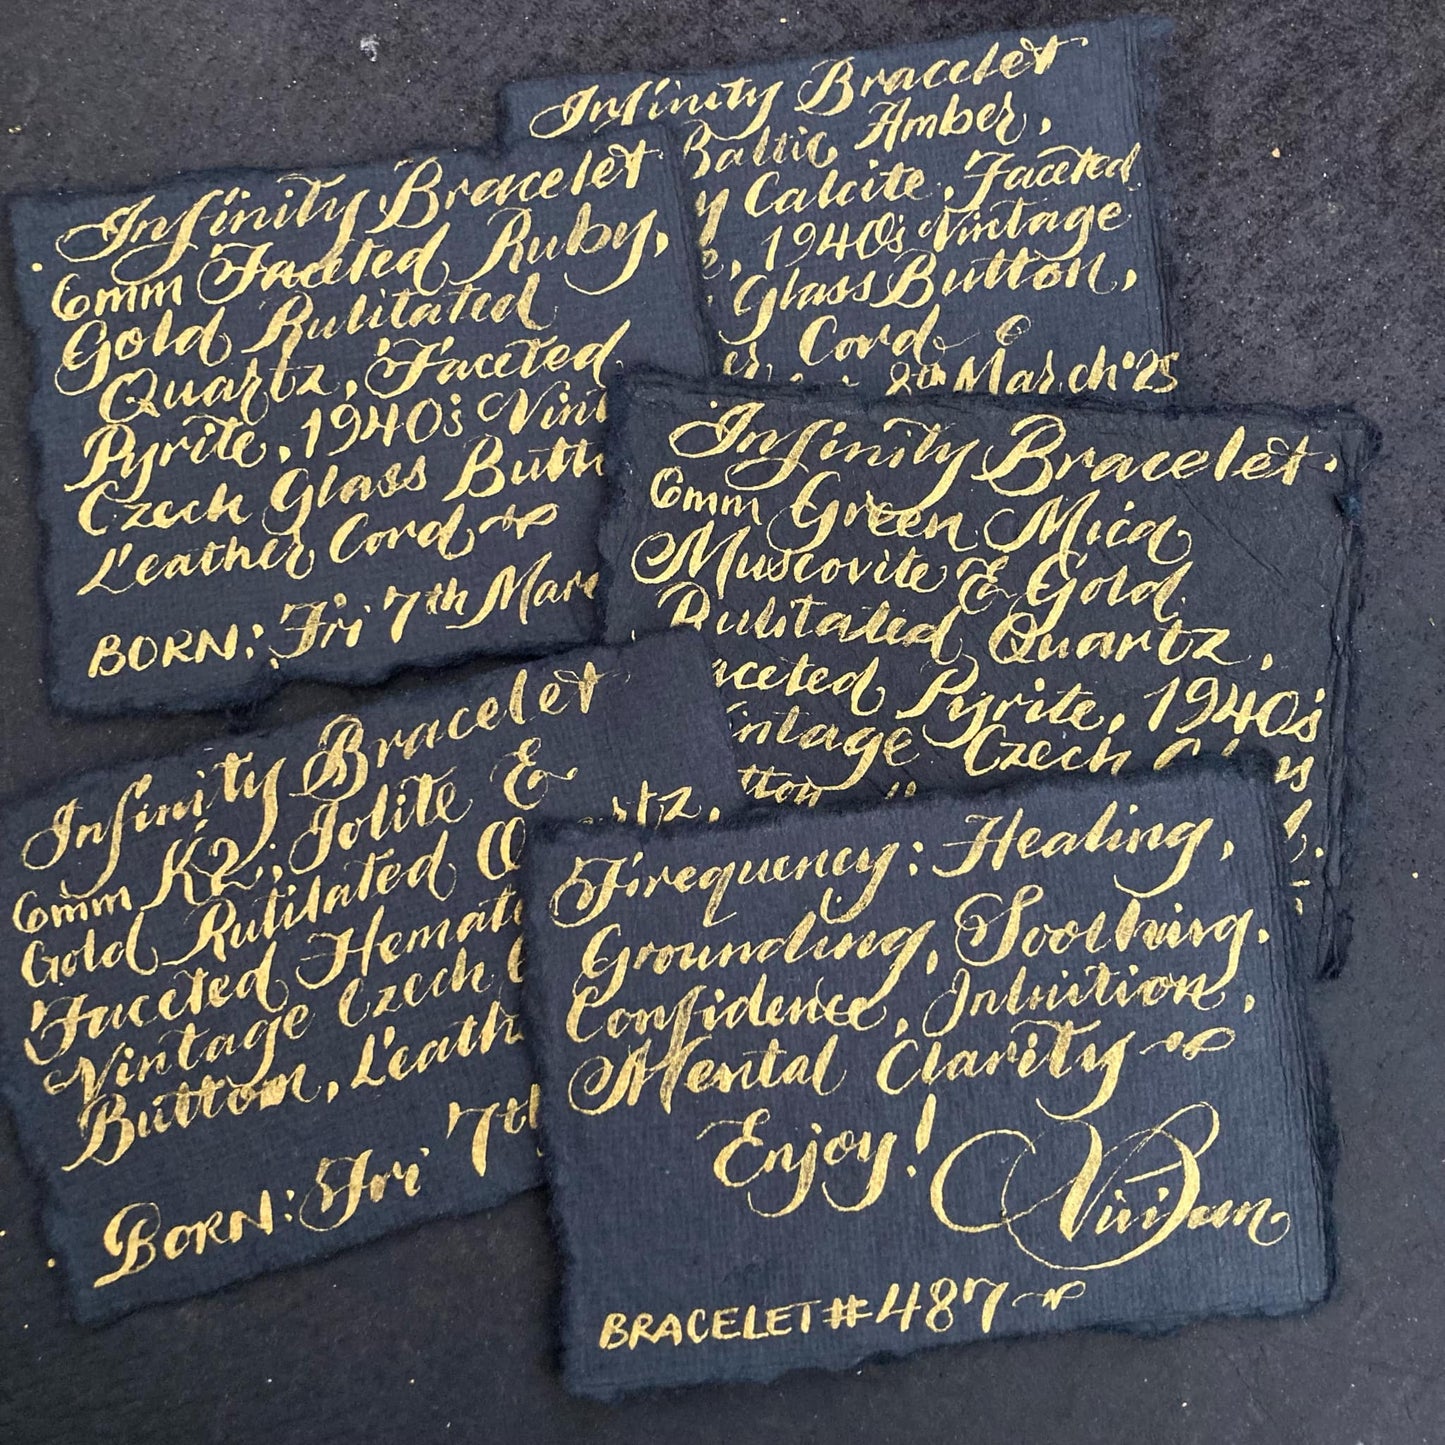 Infinity Bracelet
Baltic Amber,
Calcite, Faceted
, 1940's Vintage
Glass Button,
Cord
8th March '25
Infinity Bracelet
6mm Faceted Ruby,
Gold Rulitated
Quartz, Faceted
Pyrite, 1940's Vint
Czech Glass Butt
Leather Cord
BORN: Fri 7th Marc
Infinity Bracelet.
6mm Green Mica
Muscovite & Gold
Rulitated Quartz,
aceted Pyrite, 1940's
intage Czech
tton
Infinity Bracelet
6mm K2, Iolite &
Gold Rutilated Q rtz,
Faceted Hemat
Vintage Czech
Button, Leath
BORN: Fri 7th
Frequency: Healing,
Grounding, Soothing,
Confidence, Intuition,
Mental Clarity
Enjoy!
BRACELET #487